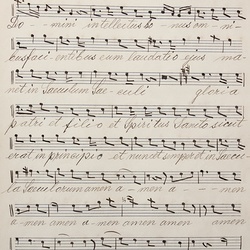 Do - mini intellectus bo - nus om - ni -
bus facientibus eum laudatio ejus ma -
net in Saeculum Sae - culi gloria
patri et filio et Spiritus Sancto sicut
erat in principio et nunc et semper et in Saecu
la Saeculorum amen a - men a - - - men
a - men amen a - men amen amen amen